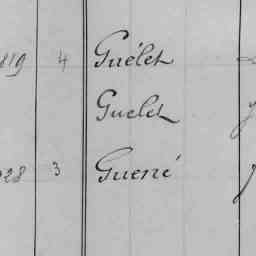 819 4 Guélet
Guelet
28 3 Guené